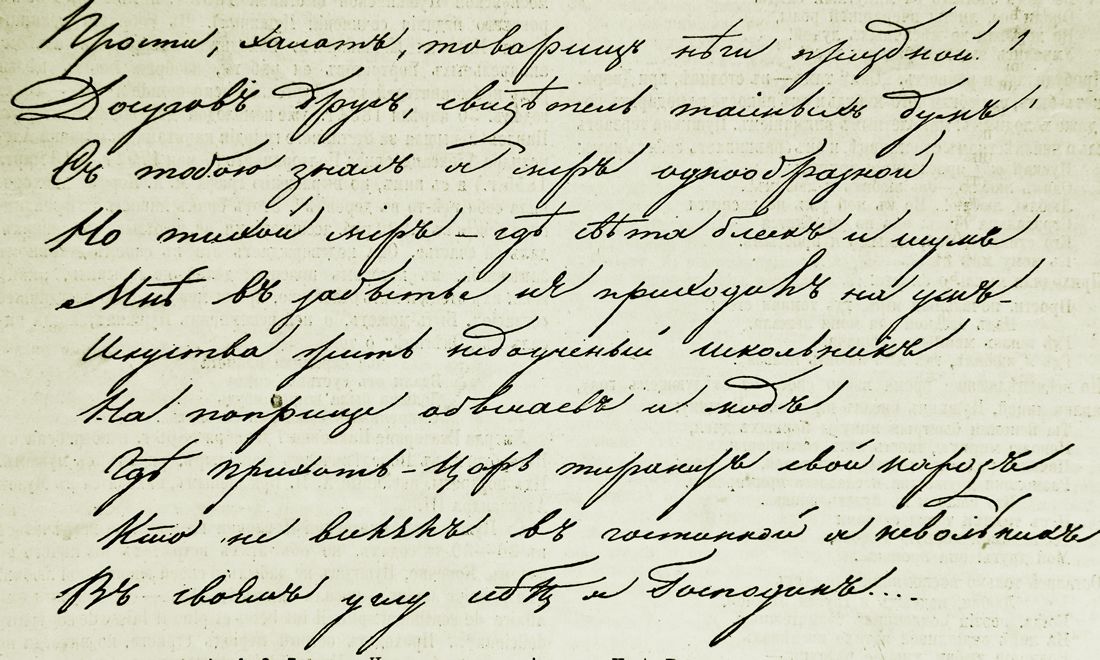 Прости, халатъ, товарищъ нѣги праздной!
Досуговъ другъ, свидѣтель тайныхъ думъ!
Съ тобою зналъ я миръ однообразной
Но тихой миръ – гдѣ свѣта блескъ и шумъ
Мнѣ въ забытьѣ не приходилъ на умъ –
Искуства жить недоученый школьникъ
На поприщѣ обычаевъ и модъ
Гдѣ прихоть-Царь тиранитъ свой народъ
Кто не видѣнъ въ гостиной я невольникъ
Въ своемъ углу себѣ я Господинъ....